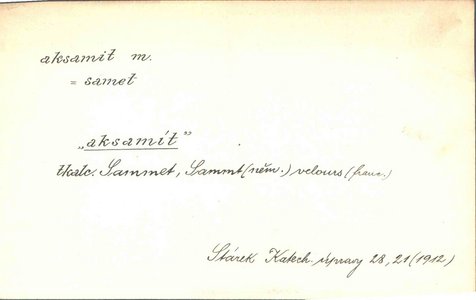 aksamit m.
= samet
„aksamít”
tkalc. Sammet, Sammt (něm.) velours (franc.)
Stárek Katech. úpravy 28, 21 (1912)